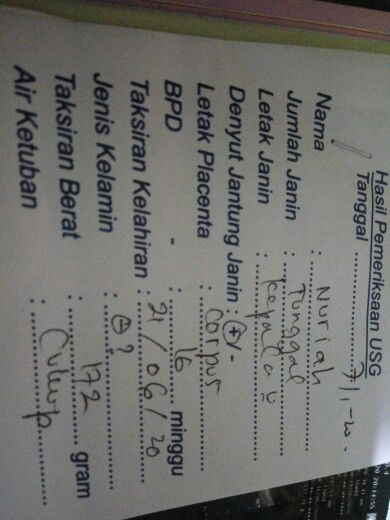 Hasil Pemeriksaan USG
Tanggal ............ 7/1-20.
Nama : Nuriah
Jumlah Janin : Tunggal
Letak Janin : Kepala
Denyut Jantung Janin : (+)/-
Letak Placenta : Corpus
BPD - : 16 minggu
Taksiran Kelahiran : 21/06/20
Jenis Kelamin : ?
Taksiran Berat : 172 gram
Air Ketuban : Cukup